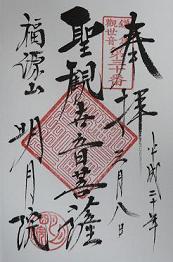 奉拝
平成三十年
二月八日
鎌倉
観世音
第三十番
聖観世音菩薩
福源山
明月院